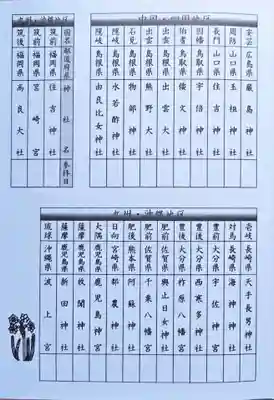 中国・四国地区
安芸 広島県 厳島神社
周防 山口県 玉祖神社
長門 山口県 住吉神社
因幡 鳥取県 宇倍神社
伯耆 鳥取県 倭文神社
出雲 島根県 出雲大社
出雲 島根県 熊野大社
石見 島根県 物部神社
隠岐 島根県 水若酢神社
隠岐 島根県 由良比女神社
九州・沖縄地区
国名 都道府県 神社名 参拝日
筑前 福岡県 住吉神社
筑前 福岡県 筥崎宮
筑後 福岡県 高良大社
九州・沖縄地区
壱岐 長崎県 天手長男神社
対馬 長崎県 海神神社
豊前 大分県 宇佐神宮
豊後 大分県 西寒多神社
豊後 大分県 柞原八幡宮
肥前 佐賀県 與止日女神社
肥前 佐賀県 千栗八幡宮
肥後 熊本県 阿蘇神社
日向 宮崎県 都農神社
大隅 鹿児島県 鹿児島神宮
薩摩 鹿児島県 枚聞神社
薩摩 鹿児島県 新田神社
琉球 沖縄県 波上宮